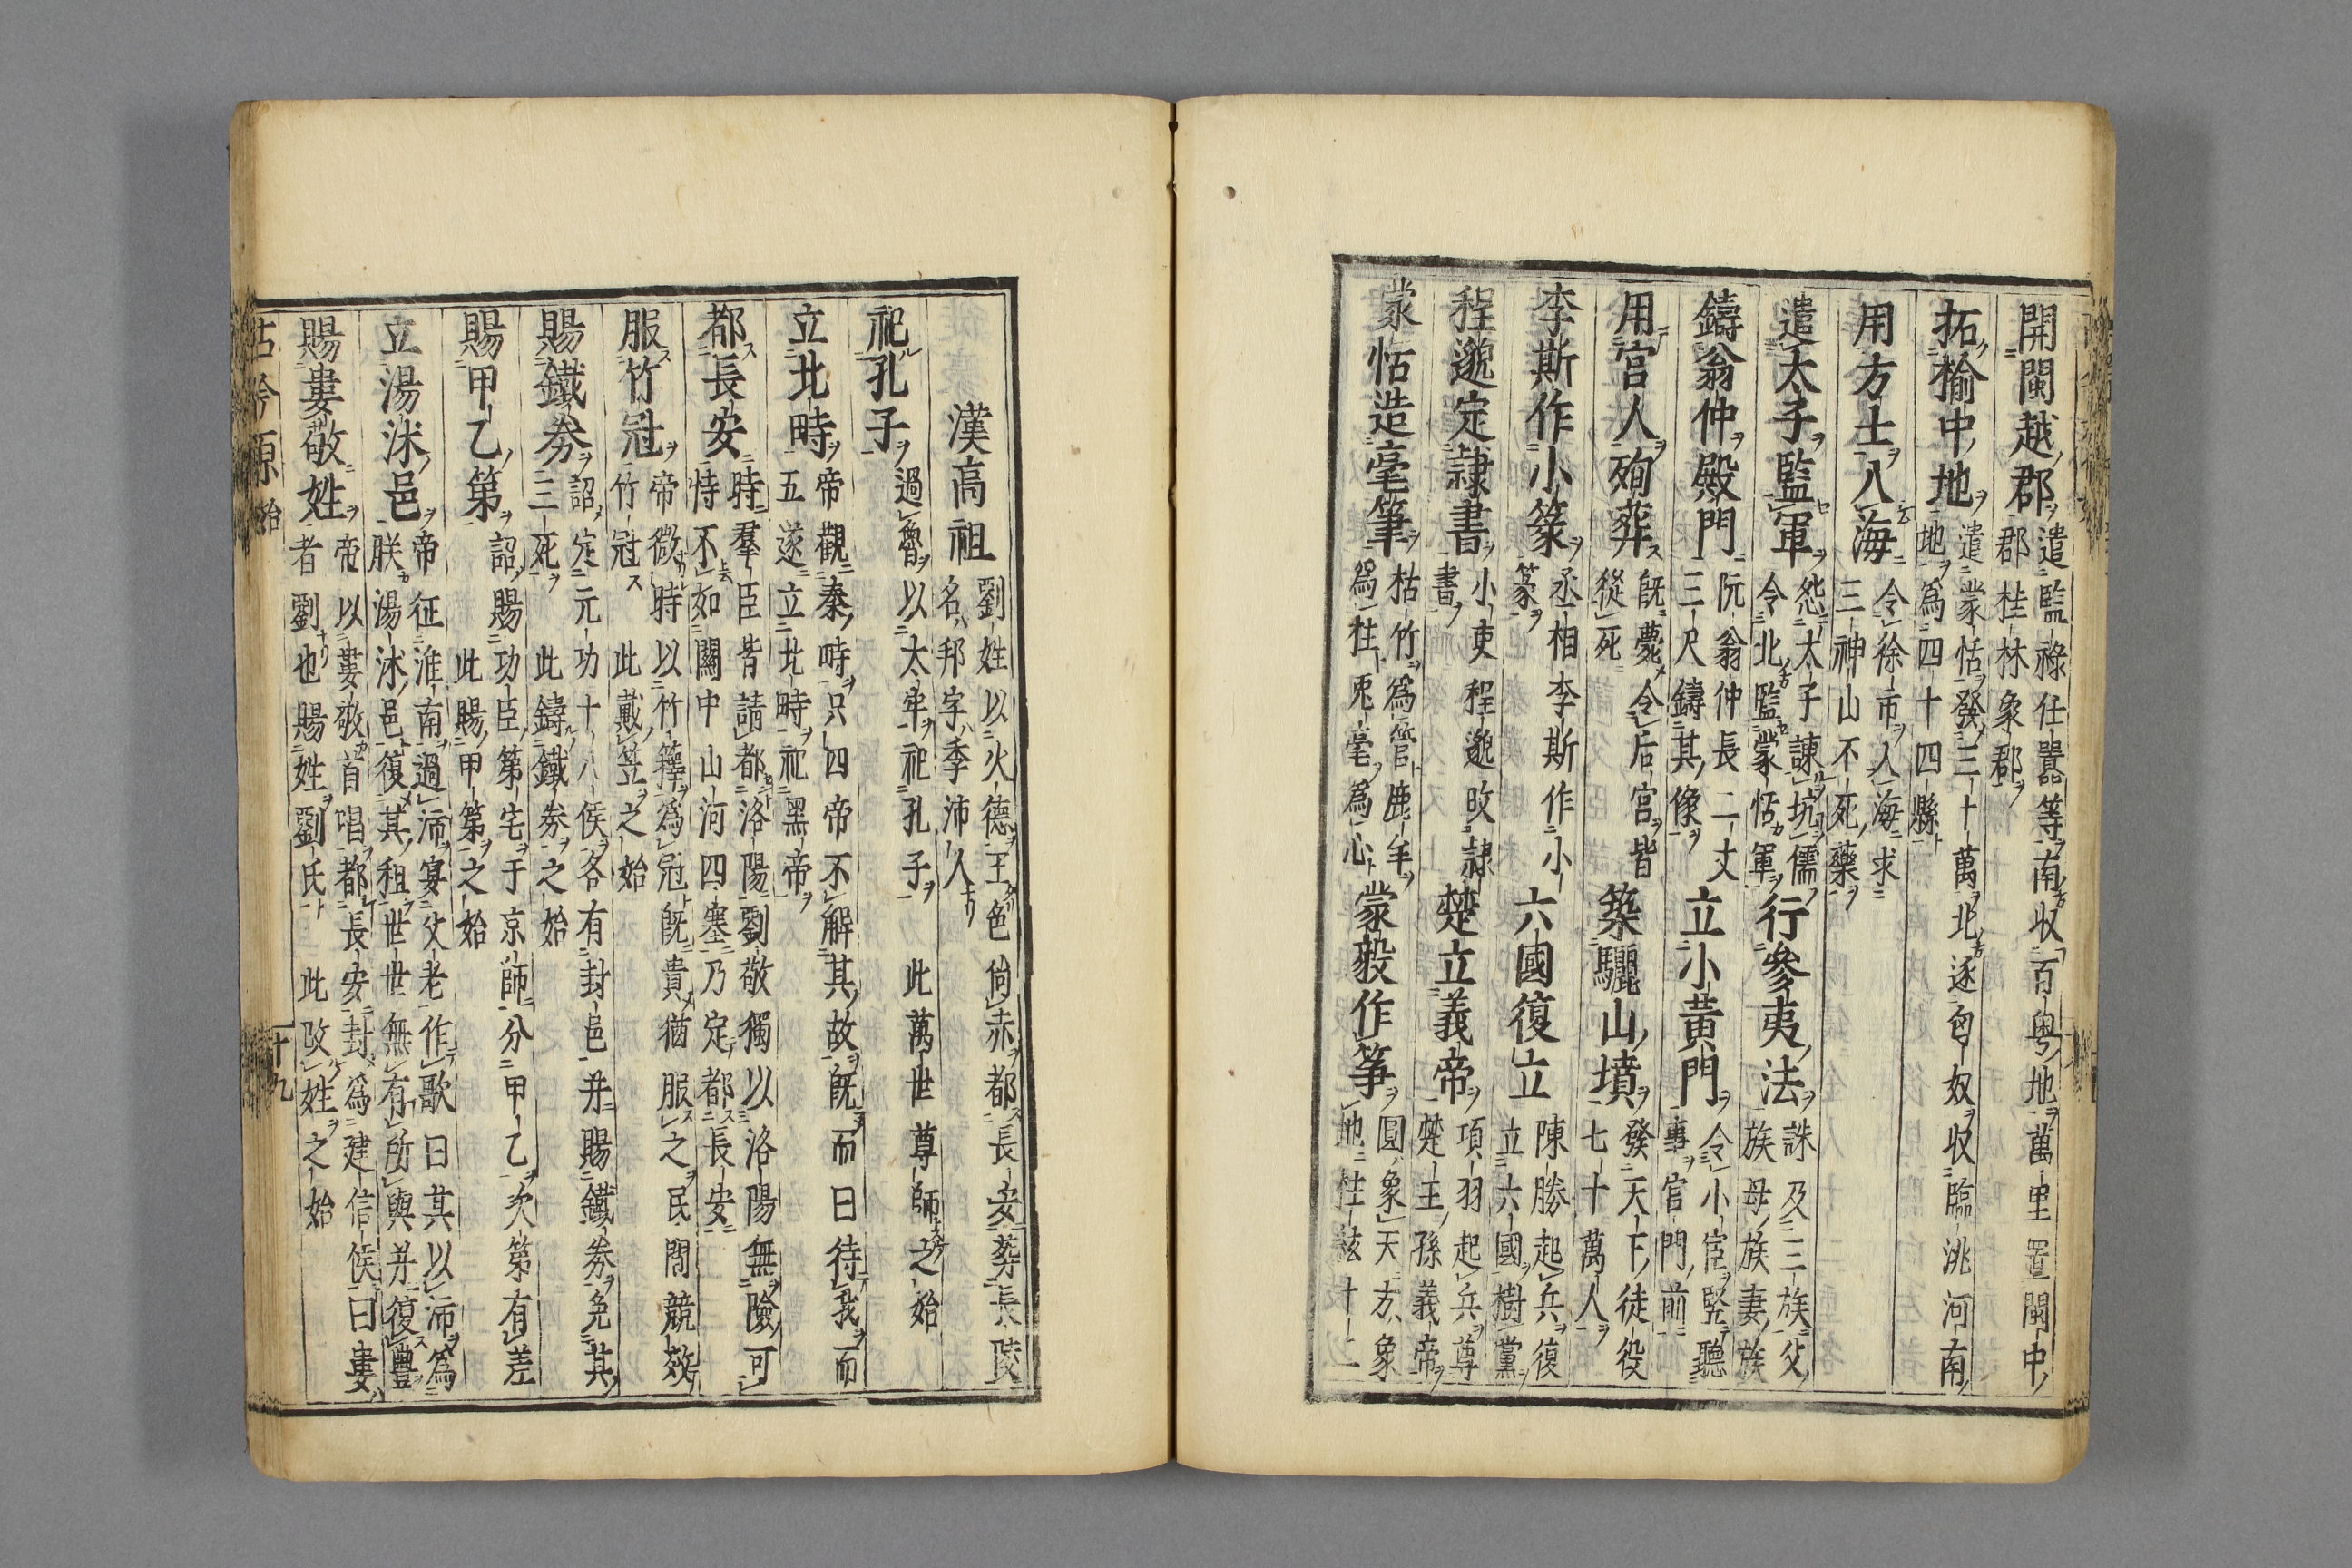 開閩越郡 遣監祿任囂等南收百粤地萬里置閩中
郡桂林象郡
拓榆中地 遣蒙恬發三十萬北逐匈奴收臨洮河南
地爲四十四縣
用方士入海 令徐市入海求
三神山不死藥
遣太子監軍 怨太子諫坑儒
令北監蒙恬軍 行參夷法 誅及三族父
族母族妻族
鑄翁仲殿門 阮翁仲長二丈
三尺鑄其像 立小黄門 令小宦竪聽
事官門前
用宫人殉葬 旣薨令后宫皆
從死 築驪山墳 發天下徒役
七十萬人
李斯作小篆 丞相李斯作小
篆 六國復立 陳勝起兵復
立六國樹黨
程邈定隷書 小吏程邈改隷
書 楚立義帝 項羽起兵尊
楚王孫義帝
蒙恬造毫筆 枯竹爲管鹿毛
爲柱兎毫爲心 蒙毅作箏 圓象天方象
地柱絃十二
漢高祖 劉姓以火德王色尚赤都長安葬長陵
名邦字季沛人
祀孔子 過魯以太牢祀孔子 此萬世尊師之始
立北畤 帝觀秦時只四帝不解其故旣而曰待我而
五遂立北畤祀黑帝
都長安 時羣臣皆請都洛陽劉敬獨以洛陽無險可
恃不如關中山河四塞乃定都長安
服竹冠 帝微時以竹籜爲冠旣貴猶服之民間競效
竹冠 此戴笠之始
賜鐵券 詔定元功十八侯各有封邑并賜鐵券免其
三死 此鑄鐵券之始
賜甲乙第 詔賜功臣第宅于京師分甲乙次第有差
此賜甲第之始
立湯沐邑 帝征淮南過沛宴父老作歌曰其以沛爲
朕湯沐邑復其租世世無有所與并復豐
賜婁敬姓 帝以婁敬首唱都長安封爲建信侯曰婁
者劉也賜姓劉氏 此改姓之始
古今原始
十九